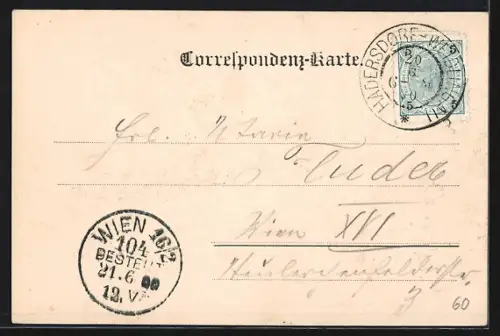 Correspondenz-Karte.
HADERSDORF-WEIDLINGAU
20
6
Frl. Maria
Tuder
Wien XVI
3
WIEN 16/2
104
BESTELLT
21.6 00
12.V
60